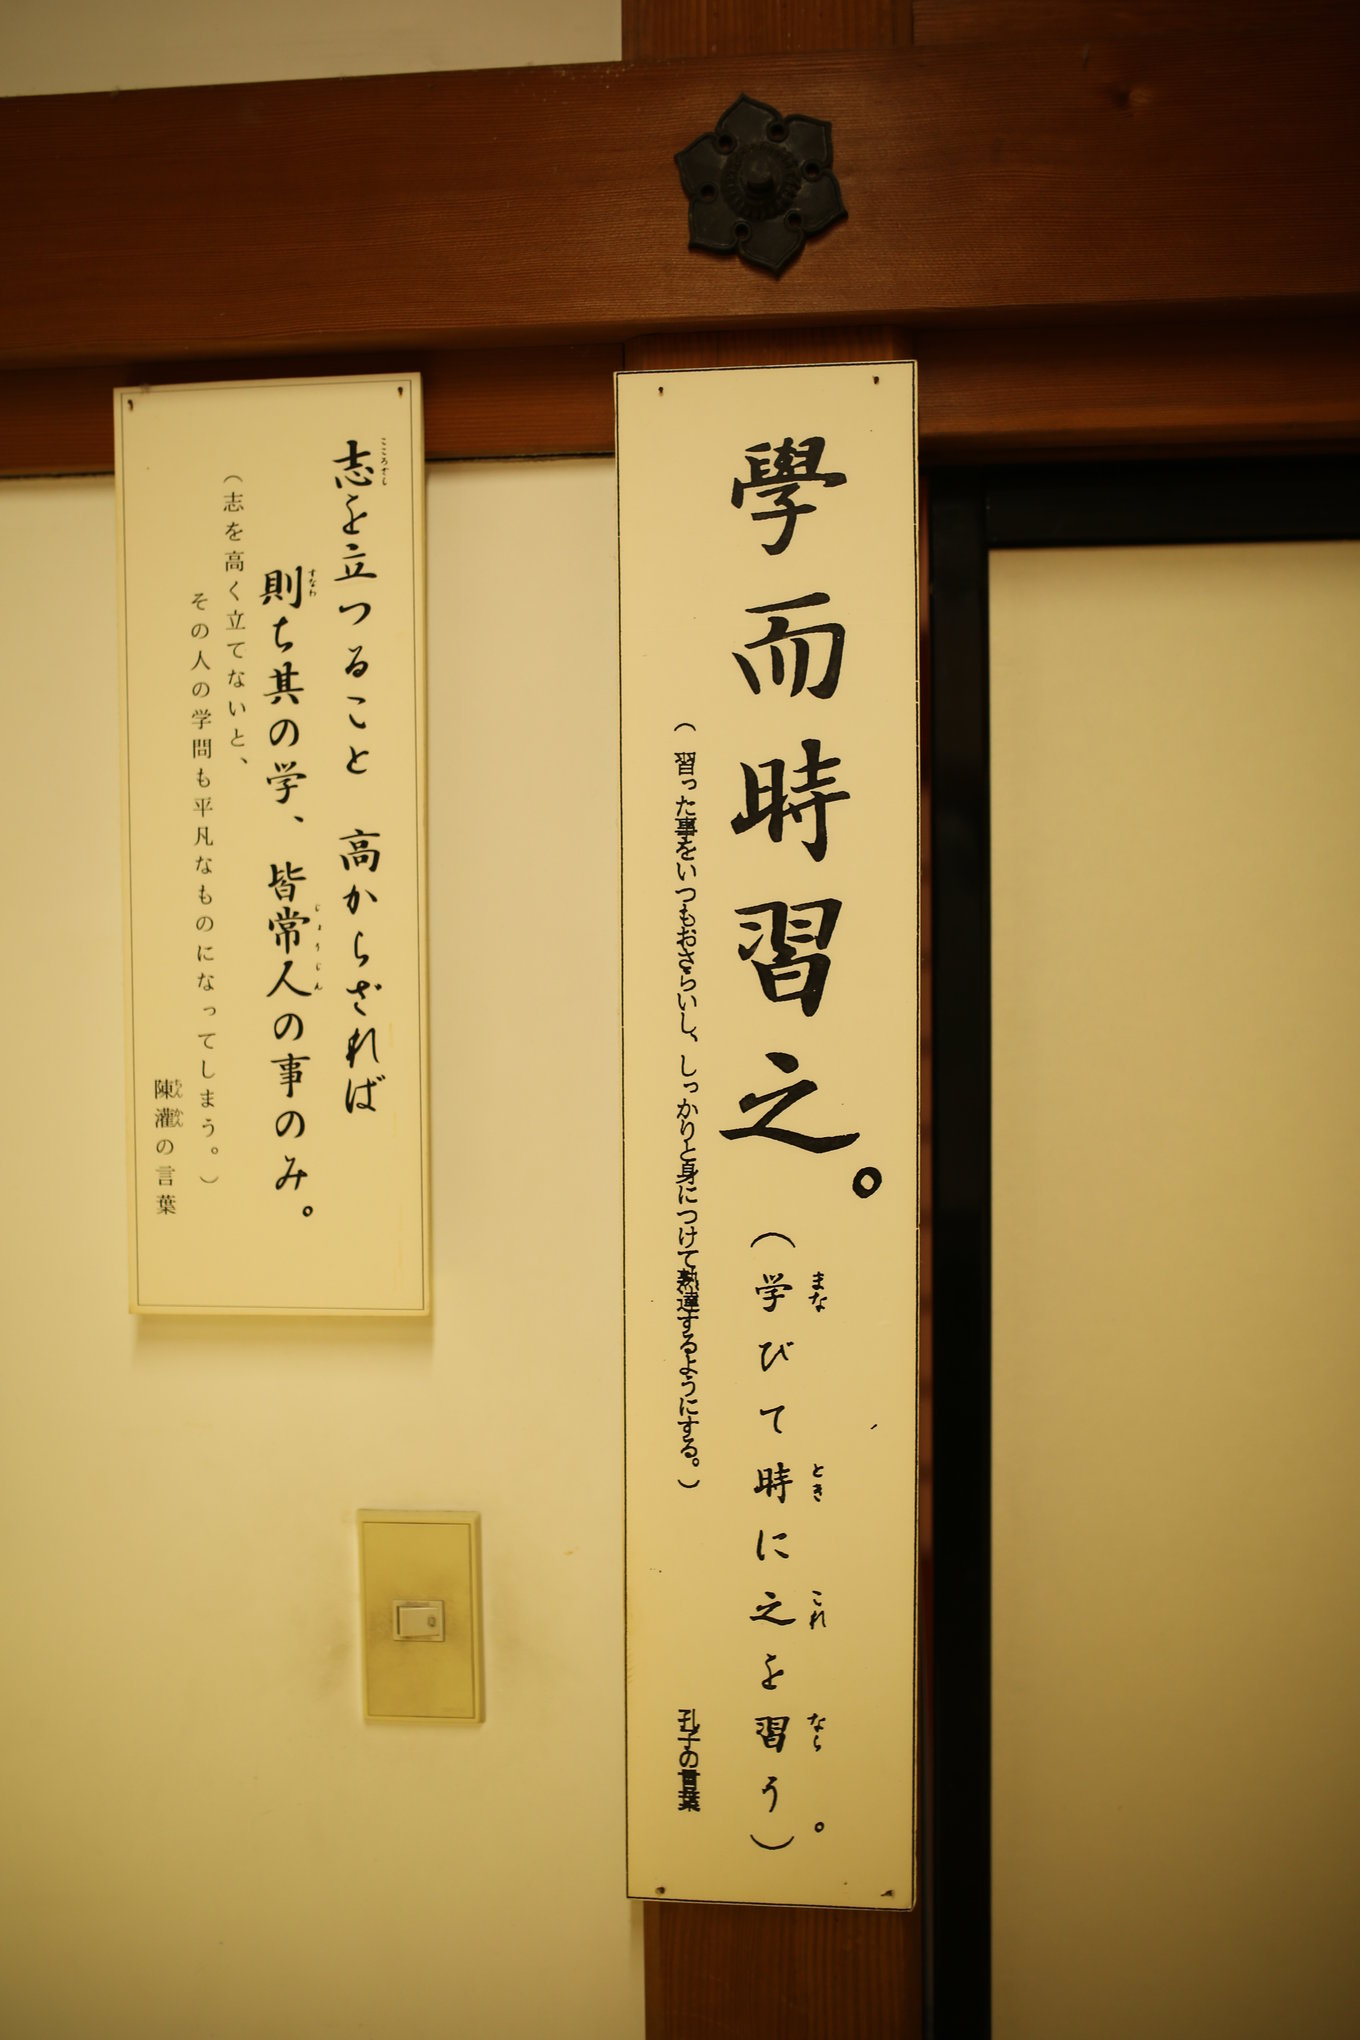 學而時習之。(学びて時に之を習う。)
(習った事をいつもおさらいし、しっかりと身につけて熟達するようにする。)
孔子の言葉
志を立つること 高からざれば
則ち其の学、皆常人の事のみ。
(志を高く立てないと、
その人の学問も平凡なものになってしまう。)
陳灌の言葉